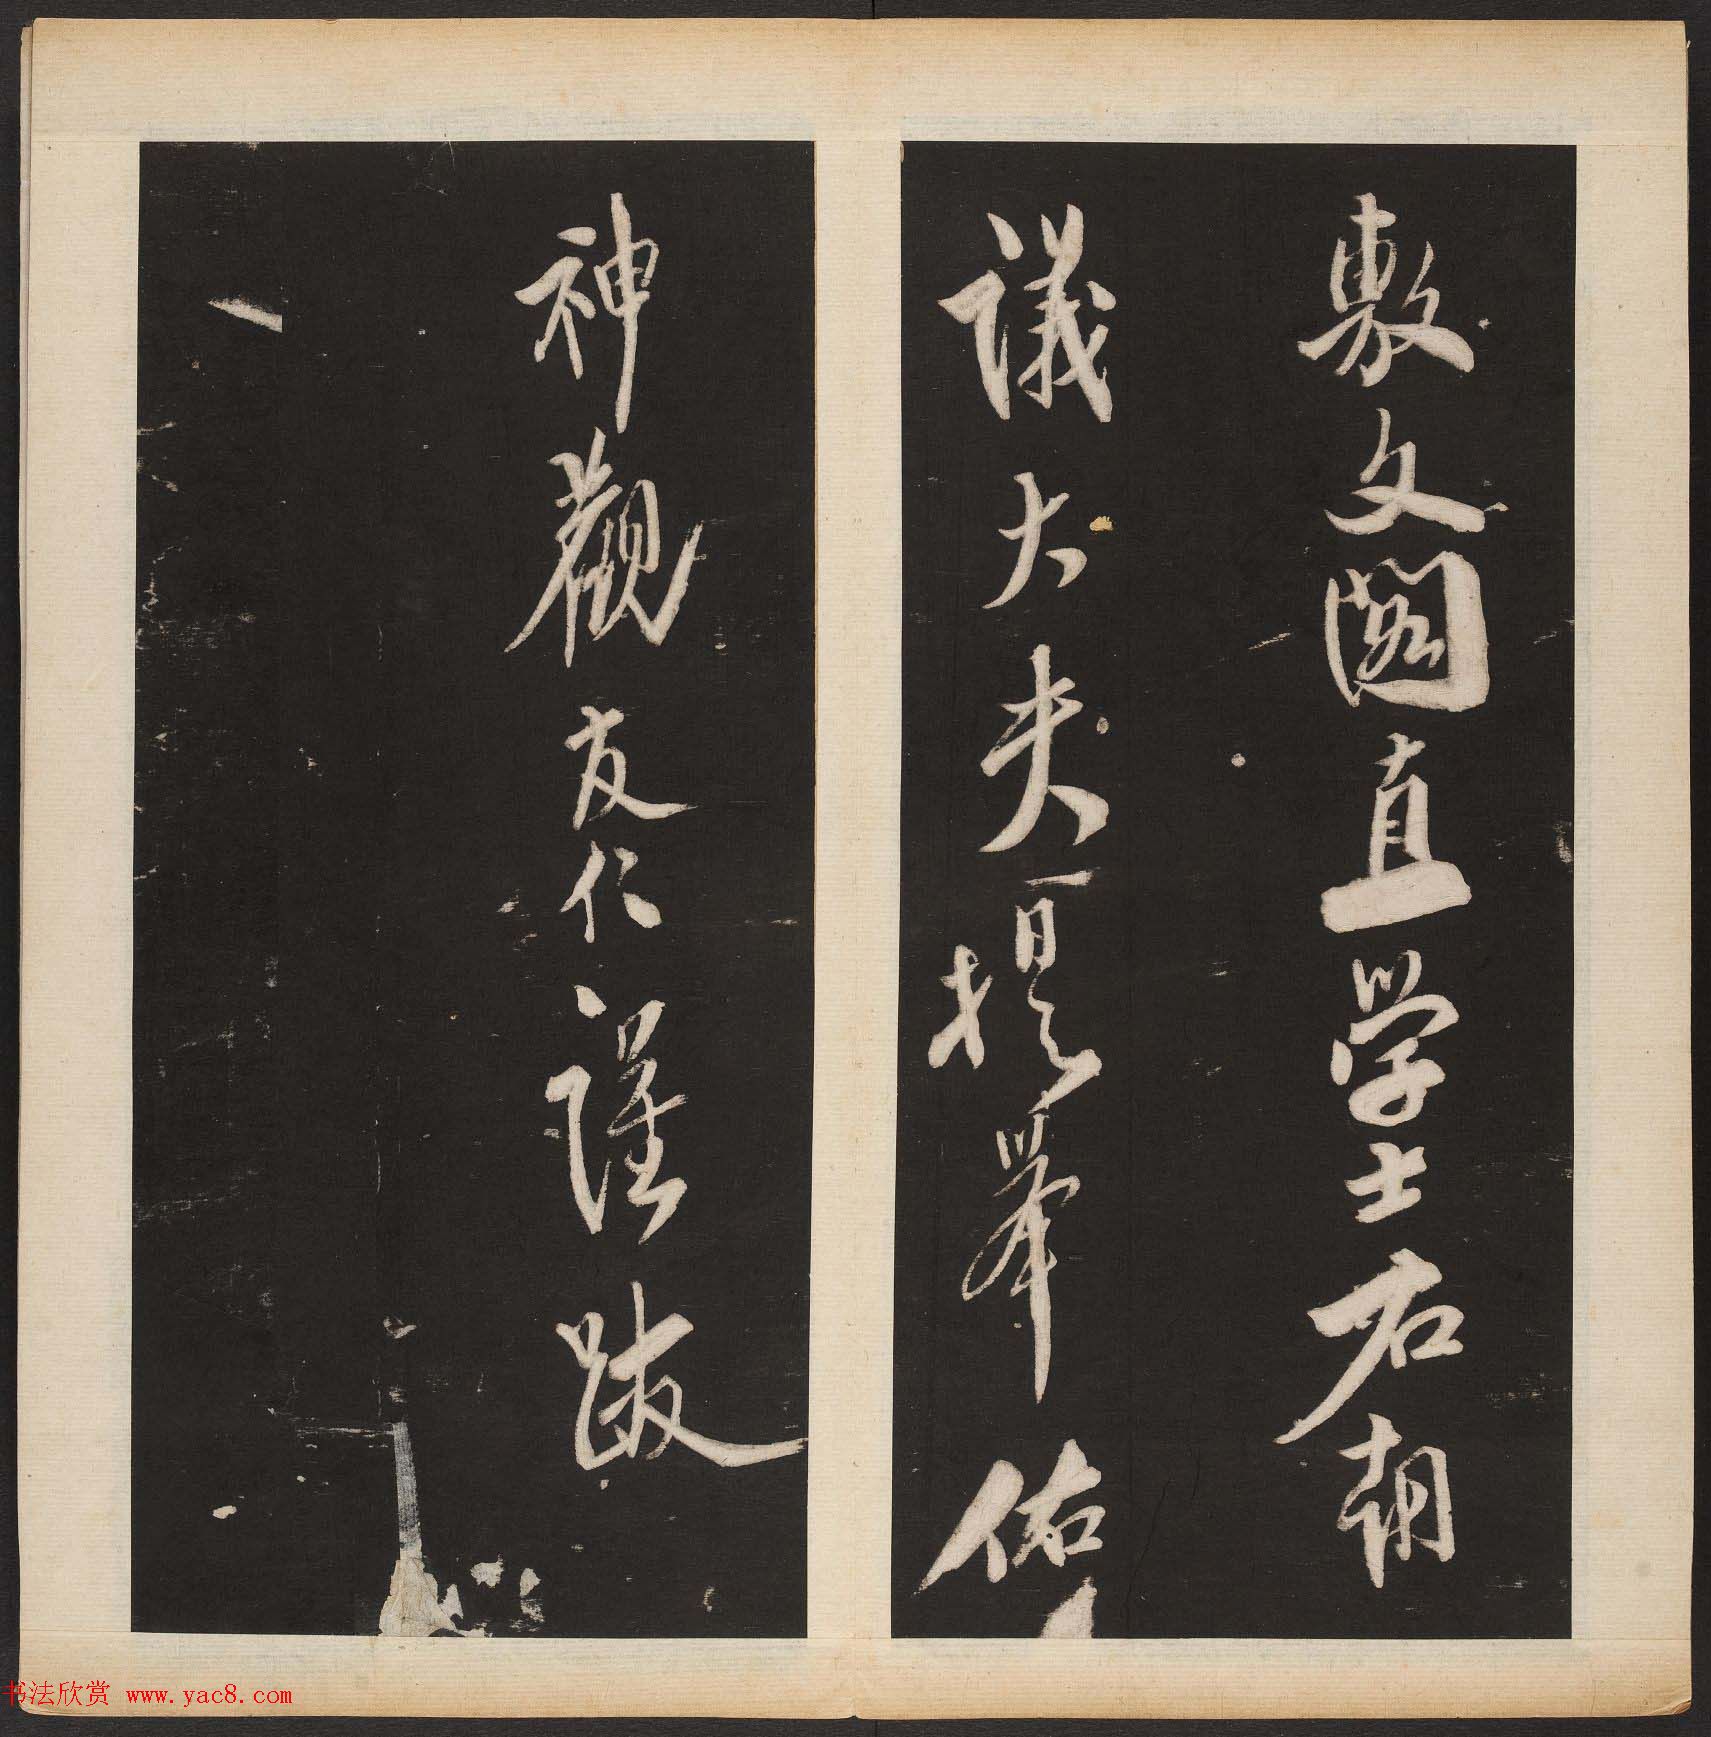 敷文閣直學士右朝
議大夫提舉佑
神觀友仁謹跋
书法欣赏 www.yac8.com